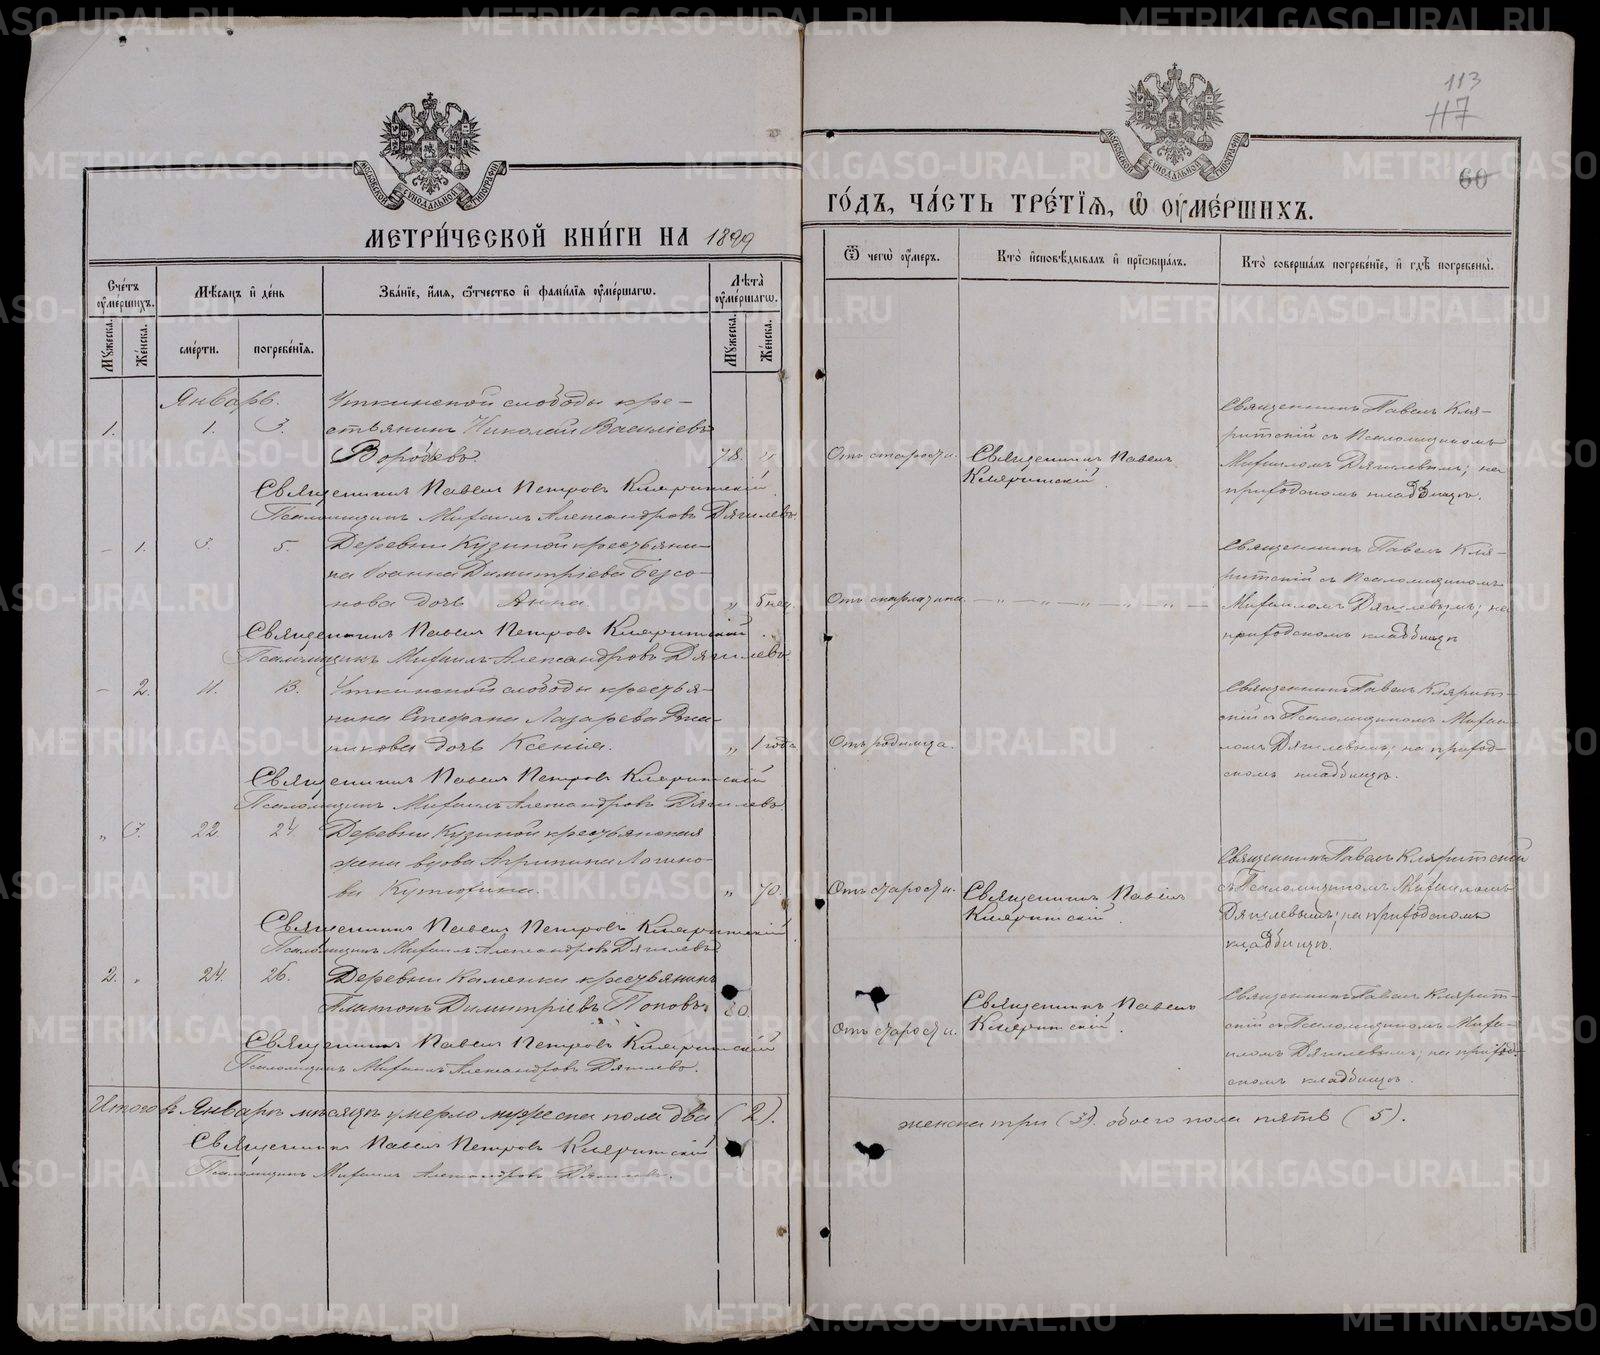 113
117
60
МОСКОВСКОЙ СѴНОДАЛЬНОЙ ТИПОГРАФІИ
МОСКОВСКОЙ СѴНОДАЛЬНОЙ ТИПОГРАФІИ
МЕТРИ́ЧЕСКОЙ КНИ́ГИ НА 1899
ГО́ДЪ, ЧА́СТЬ ТРЕ́ТІѦ, Ѿ ОУМЕ́РШИХЪ.
Сче́тъ оуме́ршихъ.
Мꙋ́жеска.
Же́нска.
Мѣ́сяцъ и де́нь
сме́рти.
погребе́нїѧ.
Зва́нїе, и́мѧ, ѻ҆́тчество и фами́лїѧ оуме́ршагѡ.
Лѣ́та оуме́ршагѡ.
Мꙋ́жеска.
Же́нска.
Ѿ чегѡ̀ оу́меръ.
Кто̀ и҆сповѣ́дывалъ и прїѡбща́лъ.
Кто̀ соверша́лъ погребе́нїе, и гдѣ̀ погребены̀.
Январь.
1. 1. 3.
Уткинской слободы кре-
стьянинъ Николай Васильевъ
78. "
Отъ старости.
Священникъ Павелъ
Священникъ Павелъ
съ Псаломщикомъ
Михаиломъ Дягилевымъ; на
приходскомъ кладбищѣ.
Священникъ Павелъ Петровъ
Псаломщикъ Михаилъ Александровъ Дягилевъ.
– 1. 3. 5.
Деревни Кузиной крестьяни-
на Іоанна Димитріева Безсо-
нова дочь Анна.
"
Отъ скарлатина.
Священникъ Павелъ
съ Псаломщикомъ
Михаиломъ Дягилевымъ; на
приходскомъ кладбищѣ
Священникъ Павелъ Петровъ
Псаломщикъ Михаилъ Александровъ Дягилевъ.
– 2. 11. 13.
Уткинской слободы крестья-
нина Стефана Лазарева
дочь Ксенія.
" 1 года
Отъ родимца.
Священникъ Павелъ
съ Псаломщикомъ Михаи-
ломъ Дягилевымъ; на приход-
скомъ кладбищѣ.
Священникъ Павелъ Петровъ
Псаломщикъ Михаилъ Александровъ Дягилевъ
" 3. 22 24
Деревни Кузиной крестьянская
жена вдова Агрипина Логино-
ва
" 70.
Отъ старости.
Священникъ Павелъ
Священникъ Павелъ
съ Псаломщикомъ Михаиломъ
Дягилевымъ; на приходскомъ
кладбищѣ.
Священникъ Павелъ Петровъ
Псаломщикъ Михаилъ Александровъ Дягилевъ
2. " 24. 26.
Деревни Каменки крестьянинъ
Платонъ Димитріевъ Поповъ.
80.
Отъ старости.
Священникъ Павелъ
Священникъ Павелъ
съ Псаломщикомъ Михаи-
ломъ Дягилевымъ; на приход-
скомъ кладбищѣ.
Священникъ Павелъ Петровъ
Псаломщикъ Михаилъ Александровъ Дягилевъ.
Итого въ Январѣ мѣсяцѣ умерло мужеска пола два (2).
женска три (3). обоего пола пять (5).
Священникъ Павелъ Петровъ
Псаломщикъ Михаилъ Александровъ Дягилевъ.
METRIKI.GASO-URAL.RU